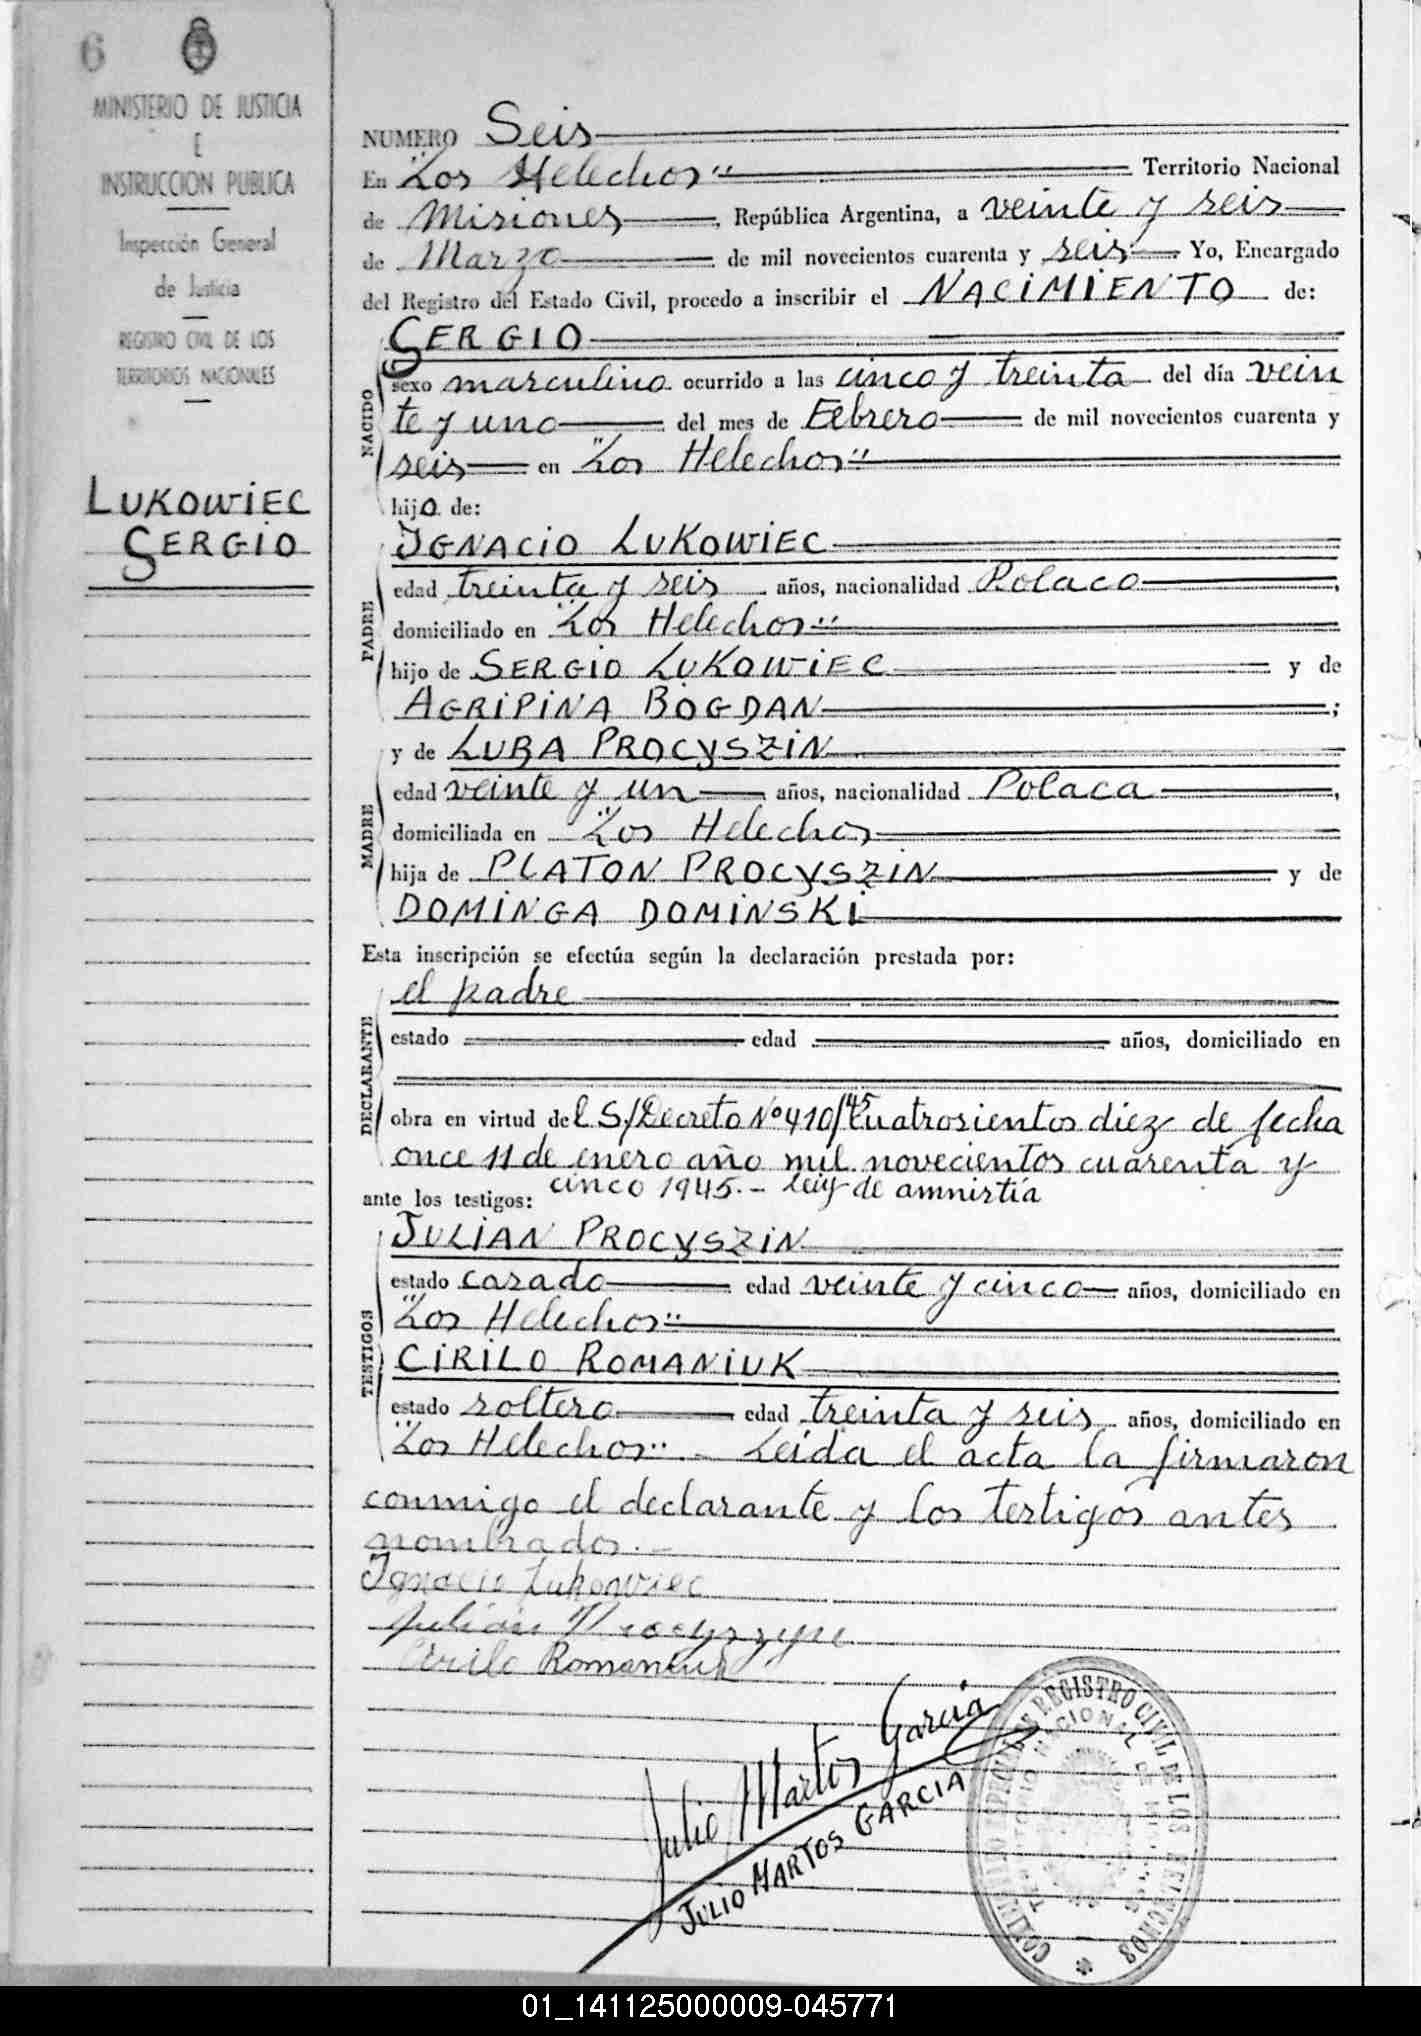 6
MINISTERIO DE JUSTICIA
E
INSTRUCCION PUBLICA
Inspección General
de Justicia
REGISTRO CIVIL DE LOS
TERRITORIOS NACIONALES
LUKOWIEC
SERGIO
NUMERO Seis
En "Los Helechos" Territorio Nacional
de Misiones, República Argentina, a veinte y seis
de Marzo de mil novecientos cuarenta y seis Yo, Encargado
del Registro del Estado Civil, procedo a inscribir el NACIMIENTO de:
SERGIO
NACIDO
sexo masculino ocurrido a las cinco y treinta del día vein
te y uno del mes de Febrero de mil novecientos cuarenta y
seis en "Los Helechos"
hijo de:
IGNACIO LUKOWIEC
PADRE
edad treinta y seis años, nacionalidad Polaco,
domiciliado en "Los Helechos"
hijo de SERGIO LUKOWIEC y de
AGRIPINA BOGDAN;
y de LUBA PROCYSZIN
MADRE
edad veinte y un años, nacionalidad Polaca,
domiciliada en "Los Helechos
hija de PLATON PROCYSZIN y de
DOMINGA DOMINSKI
Esta inscripción se efectúa según la declaración prestada por:
el padre
DECLARANTE
estado edad años, domiciliado en
obra en virtud del S./Decreto Nº 410/45 Cuatrosientos diez de fecha
once 11 de enero año mil novecientos cuarenta y
ante los testigos: cinco 1945.- ley de amnistía
JULIAN PROCYSZIN
TESTIGOS
estado casado edad veinte y cinco años, domiciliado en
"Los Helechos"
CIRILO ROMANIUK
estado soltero edad treinta y seis años, domiciliado en
"Los Helechos". - Leída el acta la firmaron
conmigo el declarante y los testigos antes
nombrados.-
Ignacio Lukowiec
Julian Procyszyn
Cirilo Romaniuk
Julio Martos Garcia
JULIO MARTOS GARCIA
REGISTRO CIVIL DE LOS HELECHOS
TERRITORIO NACIONAL DE MISIONES
01_141125000009-045771